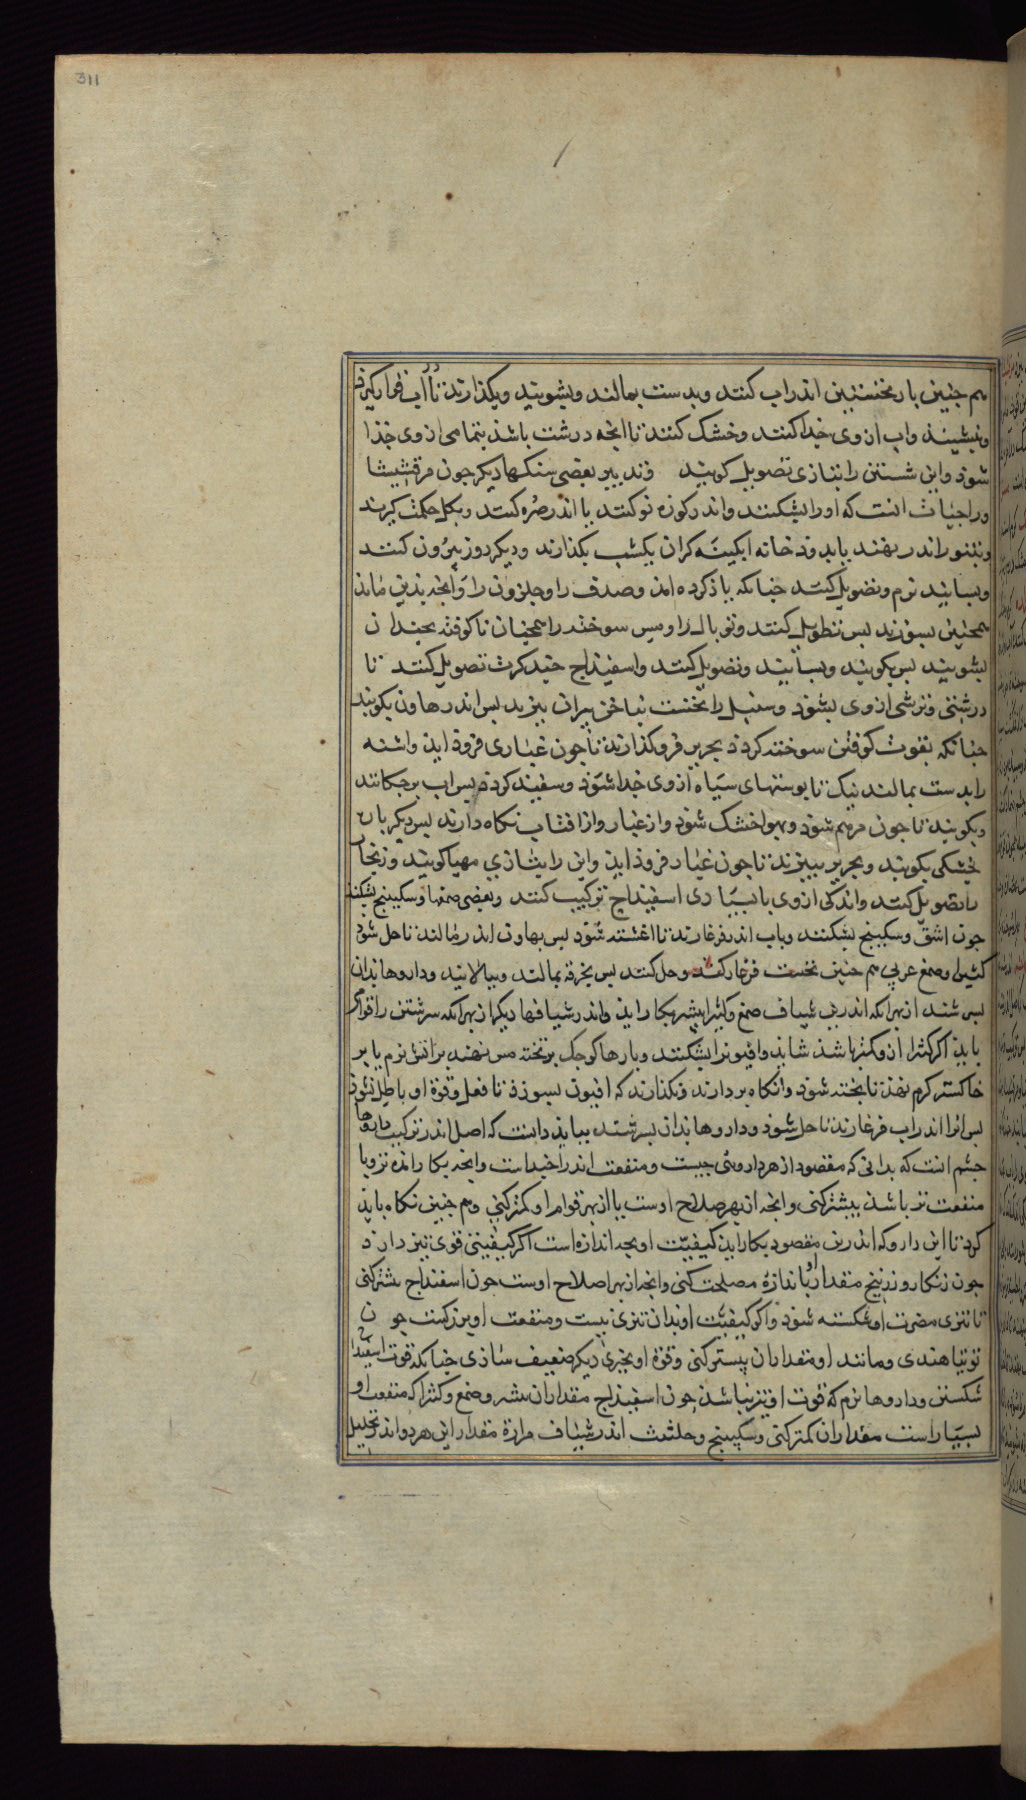 311
هم جنین بار نخستین اندر اب کنند وبدست بمالند وبشویند وبکذارند تا اب قرار کیرد
وبنشیند واب از وی جذا کنند وخشک کنند تا انجه درشت باشذ بتمامی از وی جذا
شوذ واین شستن را بتازی تصویل کویند وتدبیر بعضی سنکها دیکر جون مرقشیشا
وزاجیات انست که او را بشکنند واندر کوزه نو کنند یا اندر صره کنند وبکل حکمت کیرند
وبتنور اندر نهند یا بدوذ خانه ابکینه کران یکشب بکذارند ودیکر روز بیرون کنند
وبسایند نرم وتصویل کنند جنانکه یاذ کرده امذ وصدف را وحلزون را وانجه بذین ماند
همجنین بسوزند بس تطویل کنند وتوبال را ومس سوخته را همجنان ناکوفته بجندان
بشویند بس بکویند وبسایند وتصویل کنند واسفیذاج جند کرت تصویل کنند تا
درشتی وترشی از وی بشوذ وسنبل را نخست بناخن بیران ببرند بس اندر هاون بکویند
جنانکه بقوت کوفتن سوخته کردد بحریر فرو کذارند تا جون غباری فروذ ایذ واشنه
را بدست بمالند نیک تا بوستهای سیاه از وی جذا شوذ وسفید کردد بس اب برجکانند
وبکویند تا جون مرهم شوذ وبهوا خشک شوذ واز غبار واز افتاب نکاه دارند بس دیکر بار
بخشکی بکویند وبحریر ببیزند تا جون غبار فروذ ایذ واین را بتازی مهیا کویند وزنجار
را تصویل کنند واندکی از وی با بسیاری اسفیذاج ترکیب کنند وبعضی صمغها وسکبینج بشکنند
جون اشق وسکبینج بشکنند وباب اندر فرغارند تا اغشته شوذ بس بهاون اندر بمالند تا حل شوذ
کثیرا وصمغ عربی هم جنین نخست فرغار کنند وحل کنند بس بخرقه بمالند وببالایند وداروها بدان
بسرشند از بهر انکه اندرین شیاف صمغ وکثیرا بیشتر بکار ایذ واندر شیافها دیکر از بهر انکه سرشتن را قوام
بایذ اکر کثیرا از و کمتر باشذ شایذ وافیون را بشکنند وبارها کوجک بر تخته مس نهند بر اتش نرم یا بر
خاکستر کرم نهند تا بخته شوذ وانکاه بردارند ونکذارند که افیون بسوزذ تا فعل وقوة او باطل نشوذ
بس انرا اندر اب فرغارند تا حل شوذ وداروها بذان بسرشند ببایذ دانست که اصل اندر ترکیب داروها
جشم انست که بدانی که مقصوذ از هر داروئی جیست ومنفعت اندر اخیدا ست وانجه بکار اندر تر وبا
منفعت تر باشذ بیشتر کنی وانجه از بهر صلاح اوست یا از بهر قوام او کمتر کنی وهم جنین نکاه بایذ
کرد تا این دارو که اندرین مقصود بکار ایذ کیفیت او بجه اندازه است اکر کیفیتی قوی تیز دارد
جون زنکار وزرنیخ مقدار او باندازه مصلحت کنی وانجه از بهر اصلاح اوست جون اسفنداج بیشتر کنی
تا تیزی مضرت او شکسته شوذ واکر کیفیت او بذان تیزی نیست ومنفعت او بزرکست جون
توتیا هندی ومانند او مقدار ان بیشتر کنی وقوة او بجیزی دیکر ضعیف نسازی جنانکه قوت اسفیداج
شکستن وداروها نرم که قوت او تیز نباشذ جون اسفیذاج مقدار ان بیشتر وصمغ وکثیرا که منفعت او
بسیار است مقدار ان کمتر کنی وسکبینج وحلتیت اندر شیاف مرارة مقدار این هر دو اند تحلیل